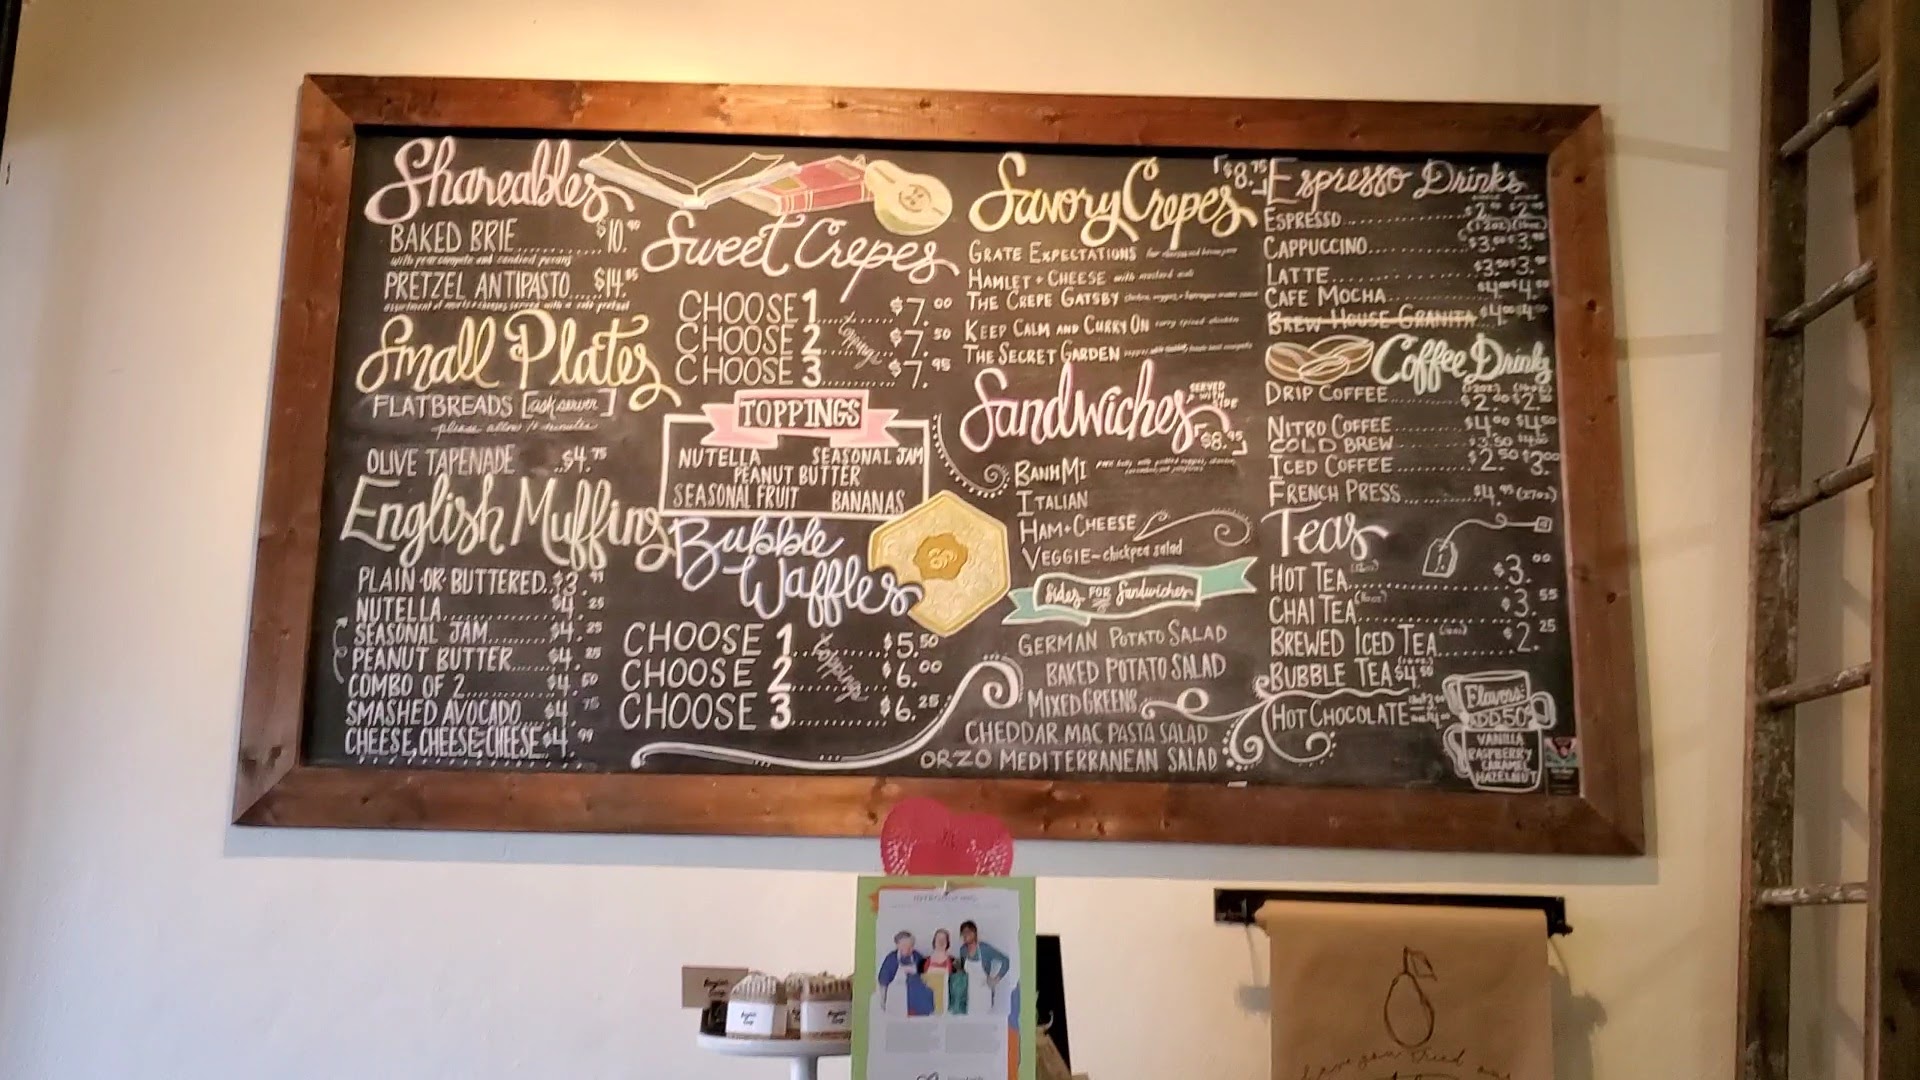 Shareables
BAKED BRIE $10.
PRETZEL ANTIPASTO $14.
Small Plates
FLATBREADS [ask server]
please allow minutes
OLIVE TAPENADE $4.75
English Muffins
PLAIN OR BUTTERED $3.
NUTELLA $4.25
SEASONAL JAM $4.25
PEANUT BUTTER $4.25
COMBO OF 2 $4.50
SMASHED AVOCADO $4.75
CHEESE, CHEESE, CHEESE $4.99
Sweet Crepes
CHOOSE 1 $7.00
CHOOSE 2 toppings $7.50
CHOOSE 3 $7.95
TOPPINGS
NUTELLA SEASONAL JAM
PEANUT BUTTER
SEASONAL FRUIT BANANAS
Bubble
Waffles
CHOOSE 1 $5.50
CHOOSE 2 toppings $6.00
CHOOSE 3 $6.25
Savory Crepes $8.75
GRATE EXPECTATIONS
HAMLET + CHEESE
THE CREPE GATSBY
KEEP CALM AND CURRY ON
THE SECRET GARDEN
Sandwiches SERVED WITH SIDE $8.95
BANH MI
ITALIAN
HAM + CHEESE
VEGGIE - chickpea salad
Sides FOR Sandwiches
GERMAN POTATO SALAD
BAKED POTATO SALAD
MIXED GREENS
CHEDDAR MAC PASTA SALAD
ORZO MEDITERRANEAN SALAD
Espresso Drinks
ESPRESSO
CAPPUCCINO
LATTE
CAFE MOCHA
BREW HOUSE GRANITA
Coffee Drinks
DRIP COFFEE
NITRO COFFEE $4.00 $4.50
COLD BREW
ICED COFFEE $2.50 $3.00
FRENCH PRESS $4.95 (27oz)
Teas
HOT TEA $3.00
CHAI TEA $3.55
BREWED ICED TEA $2.25
BUBBLE TEA $4.50
HOT CHOCOLATE
Flavors:
ADD 50¢
VANILLA
RASPBERRY
CARAMEL
HAZELNUT
INTRODUCING